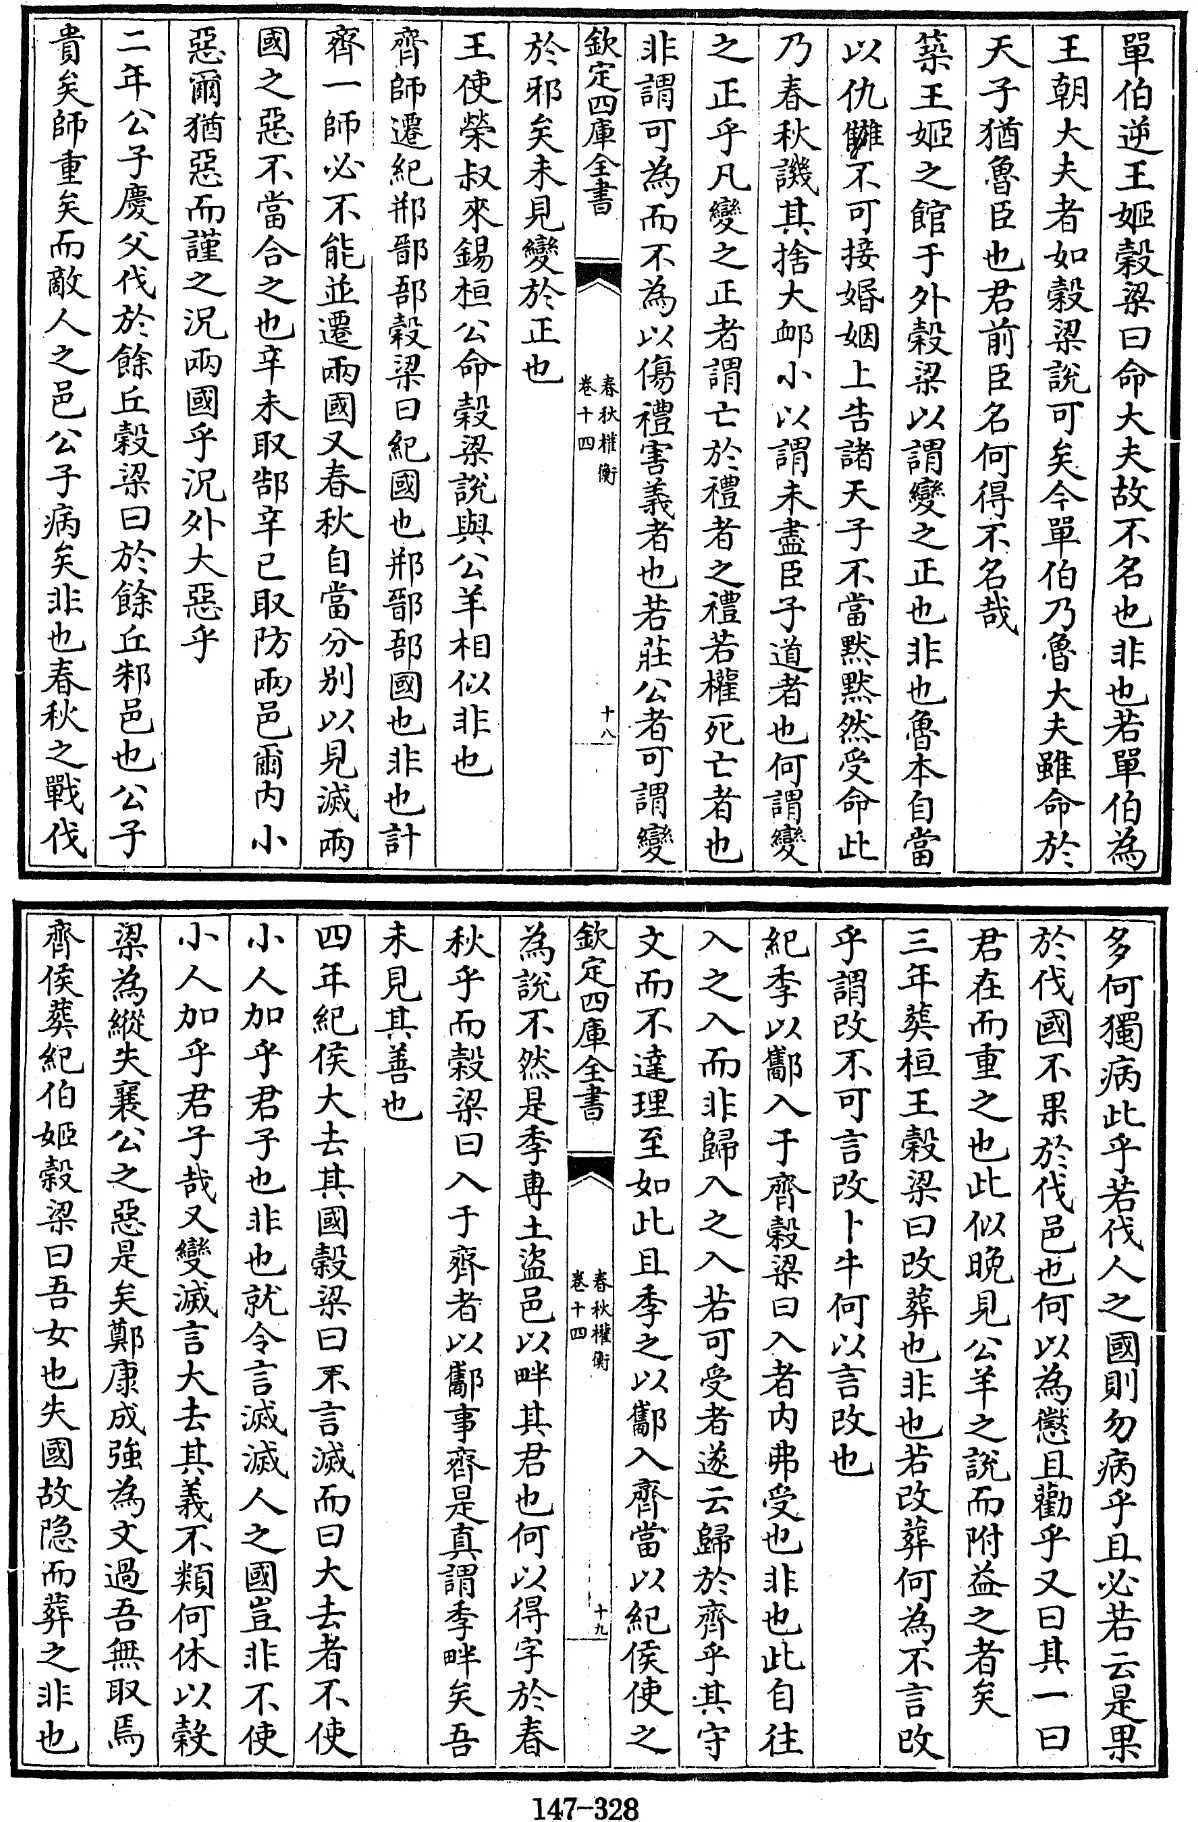 單伯逆王姬穀梁曰命大夫故不名也非也若單伯為
王朝大夫者如穀梁說可矣今單伯乃魯大夫雖命於
天子猶魯臣也君前臣名何得不名哉
築王姬之館于外穀梁以謂變之正也非也魯本自當
以仇讎不可接婚姻上告諸天子不當默默然受命此
乃春秋譏其捨大䘏小以謂未盡臣子道者也何謂變
之正乎凡變之正者謂亡於禮者之禮若權死亡者也
非謂可為而不為以傷禮害義者也若莊公者可謂變
欽定四庫全書
春秋權衡
卷十四
十八
於邪矣未見變於正也
王使榮叔來錫桓公命穀梁說與公羊相似非也
齊師遷紀郱鄑郚穀梁曰紀國也郱鄑郚國也非也計
齊一師必不能並遷兩國又春秋自當分別以見滅兩
國之惡不當合之也辛未取郜辛巳取防兩邑爾内小
惡爾猶惡而謹之況兩國乎況外大惡乎
二年公子慶父伐於餘丘穀梁曰於餘丘邾邑也公子
貴矣師重矣而敵人之邑公子病矣非也春秋之戰伐
多何獨病此乎若伐人之國則勿病乎且必若云是果
於伐國不果於伐邑也何以為懲且勸乎又曰其一曰
君在而重之也此似晚見公羊之說而附益之者矣
三年葬桓王穀梁曰改葬也非也若改葬何為不言改
乎謂改不可言改卜牛何以言改也
紀季以酅入于齊穀梁曰入者内弗受也非也此自往
入之入而非歸入之入若可受者遂云歸於齊乎其守
文而不達理至如此且季之以酅入齊當以紀侯使之
欽定四庫全書
春秋權衡
卷十四
十九
為說不然是季專土盜邑以畔其君也何以得字於春
秋乎而穀梁曰入于齊者以酅事齊是真謂季畔矣吾
未見其善也
四年紀侯大去其國穀梁曰不言滅而曰大去者不使
小人加乎君子也非也就令言滅滅人之國豈非不使
小人加乎君子哉又變滅言大去其義不類何休以穀
梁為縱失襄公之惡是矣鄭康成強為文過吾無取焉
齊侯葬紀伯姬穀梁曰吾女也失國故隐而葬之非也
147-328